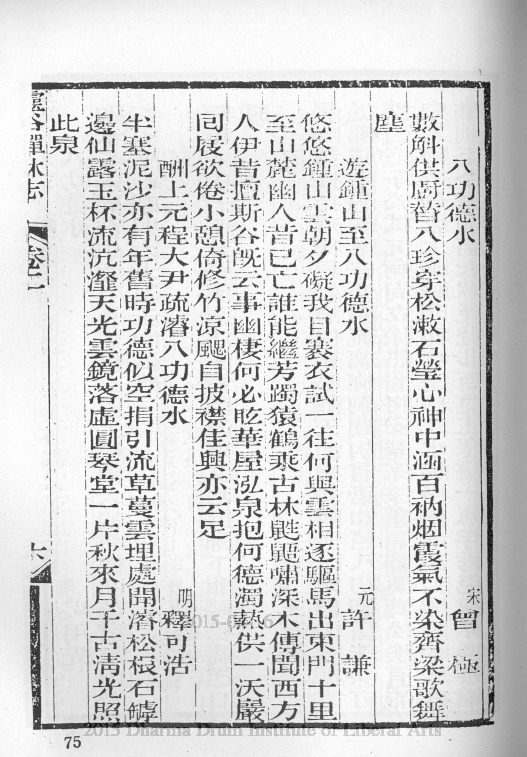 八功德水
宋 曾極
數斛供廚替八珍穿松漱石瑩心神中涵百衲烟霞氣不染齊梁歌舞
塵
遊鍾山至八功德水
元 許謙
悠悠鍾山雲朝夕礙我目褰衣試一往何與雲相逐驅馬出東門十里
至山麓幽人昔已亡誰能繼芳躅猿鶴乘古林鼪鼯嘯深木傳聞西方
人伊昔擅斯谷旣云事幽棲何必眩華屋泓泉抱何德濁熱供一沃巖
同屐欲倦小憩倚修竹涼颸自披襟佳興亦云足
酬上元程大尹疏濬八功德水
明 釋可浩
半塞泥沙亦有年舊時功德似空捐引流草蔓雲埋處開濬松根石罅
邊仙露玉杯流沆瀣天光雲鏡落虛圓琴堂一片秋來月千古清光照
此泉
靈谷禪林志 卷十一
75
2015 Dharma Drum Institute of Liberal Arts